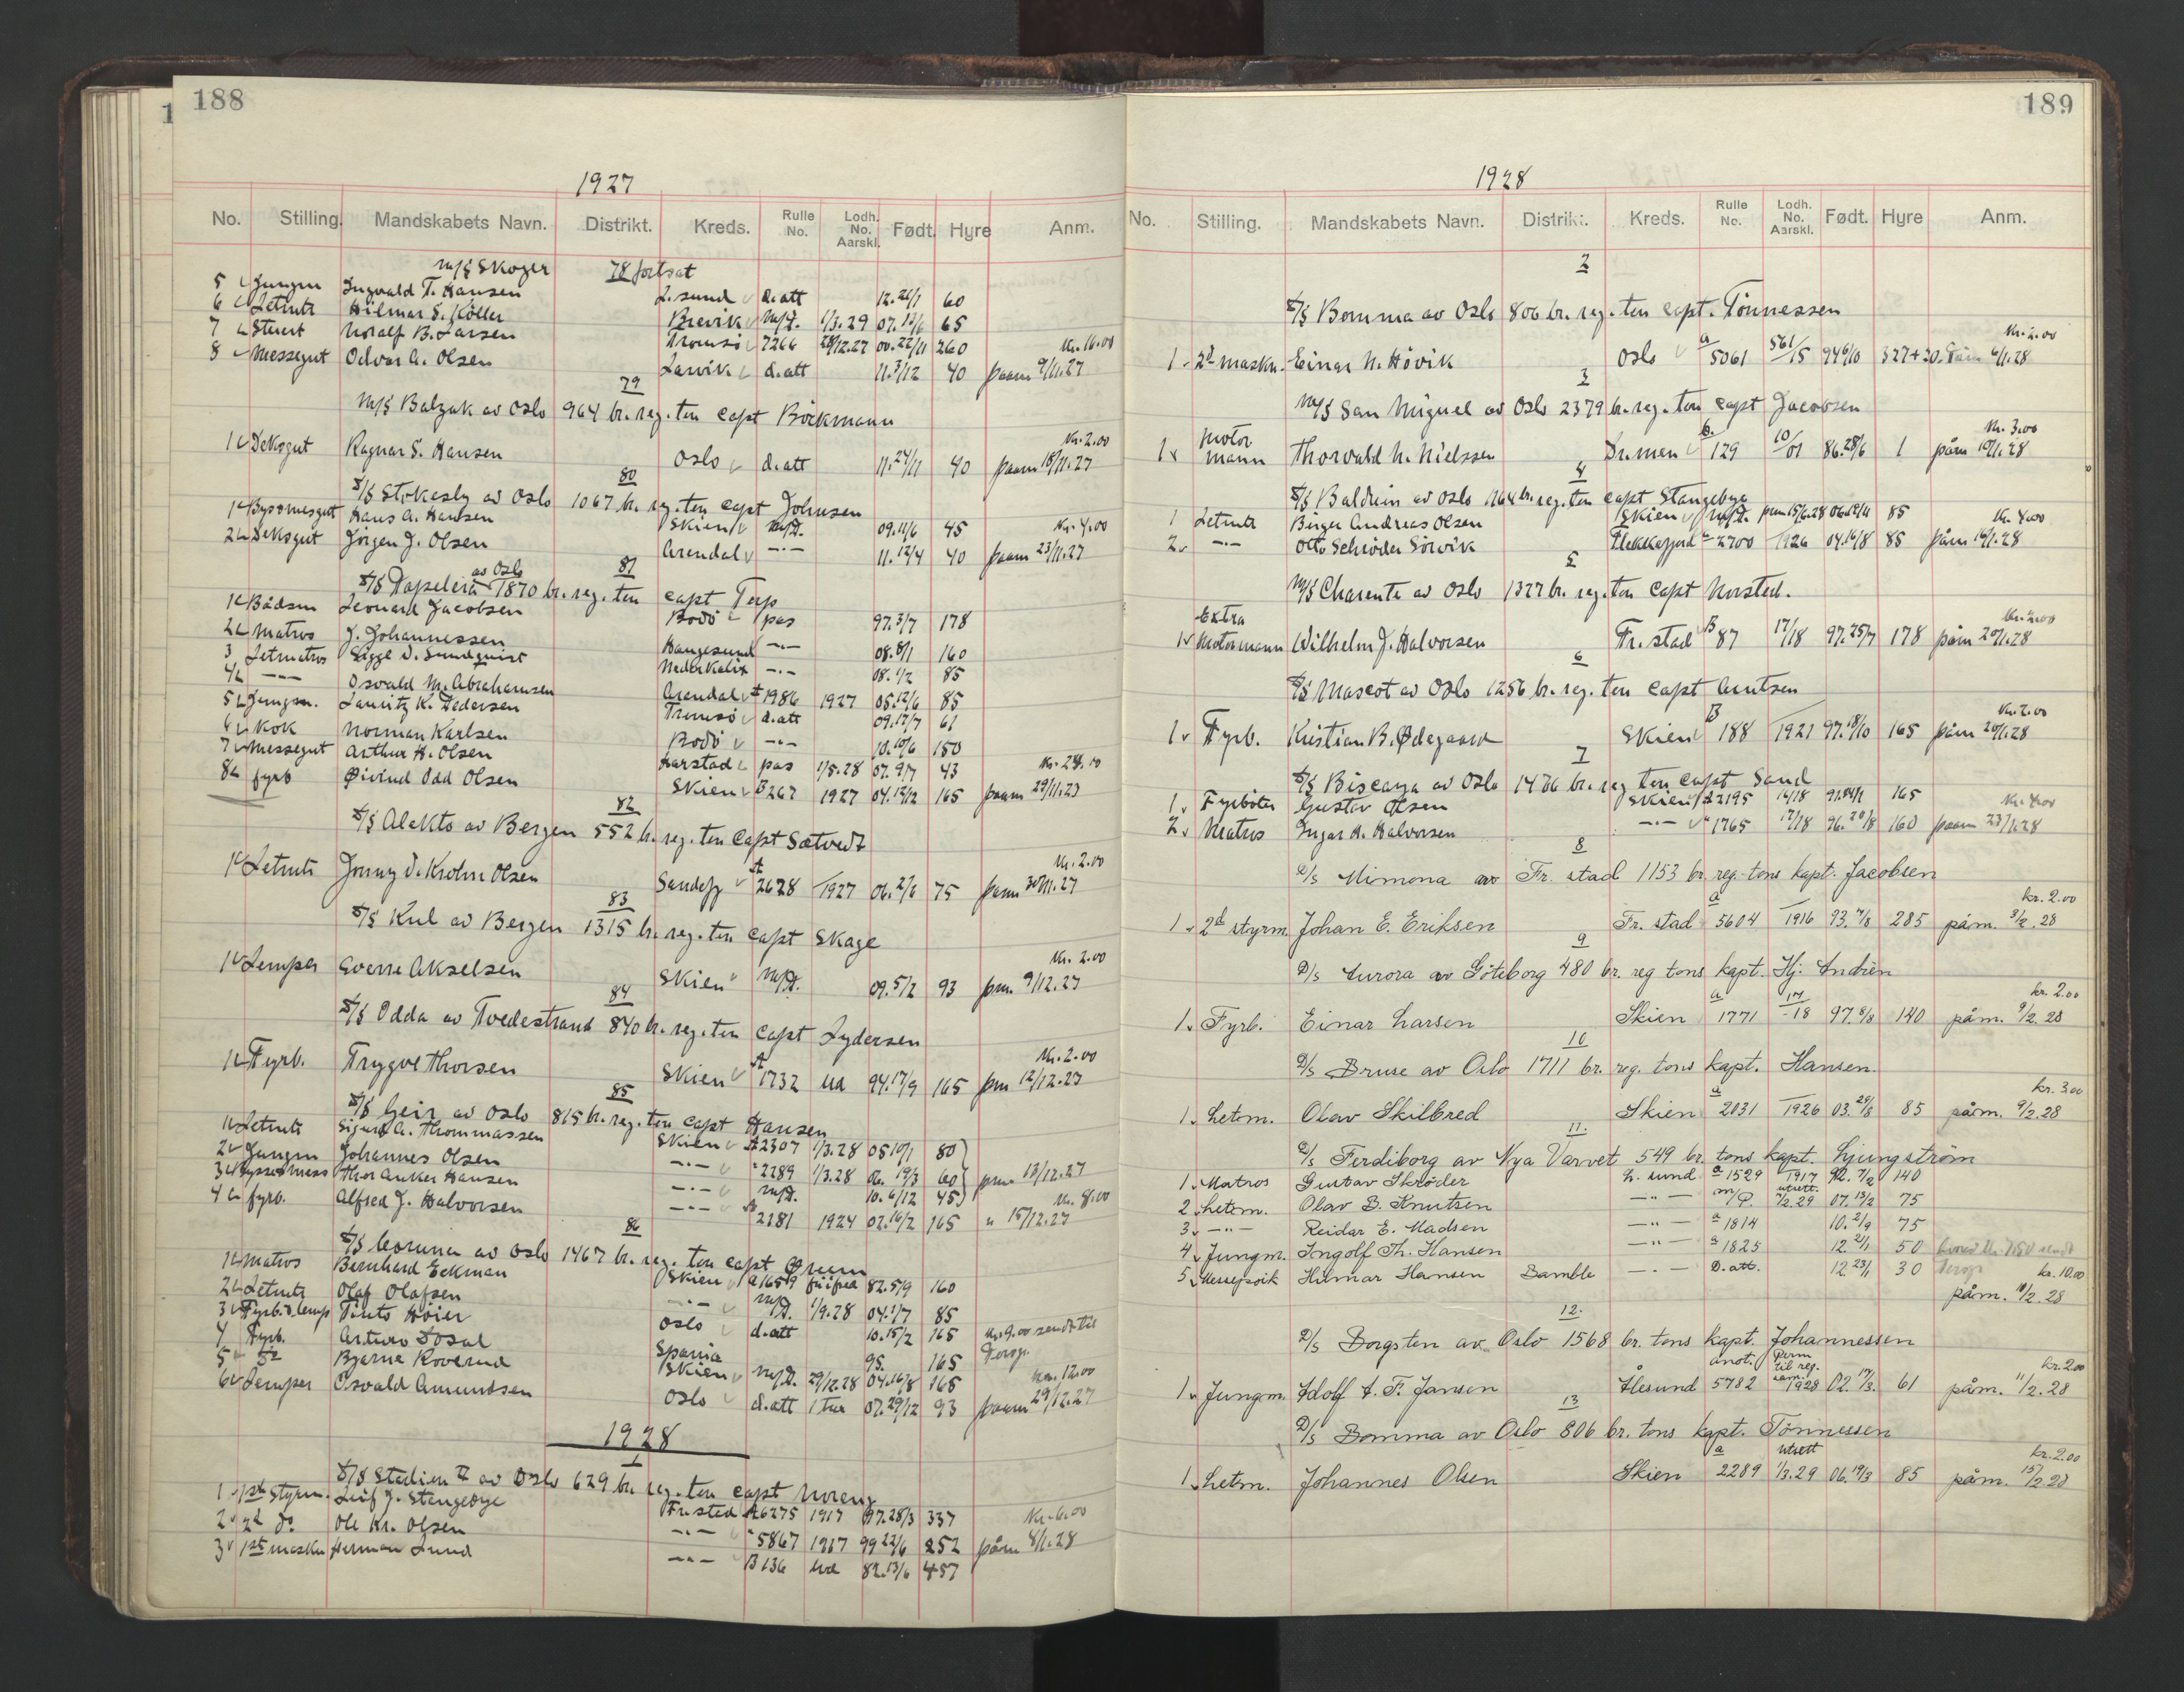 188
1927
No. Stilling. Mandskabets Navn. Distrikt. Kreds. Rulle No. Lodh. No. Aarskl. Født. Hyre Anm.
M/S Skoger 78 fortsat
5 Jungm Ingvald T. Hansen L.sund d.att 12.21/1 60
6 Letmtr Hilmar S. Köller Brevik M/P. 1/3.29 07.12/6 65
7 Stuert Norolf B. Larsen Tromsö 7266 28/12.27 00.22/11 260 Kr. 16.00
8 Messegut Odvar A. Olsen Larvik d.att 11.3/12 40 paam 9/11.27
79
M/S Balzak av Oslo 964 br.reg.ton Capt Böckmann
1 Deksgut Ragnar S. Hansen Oslo d.att 11.24/11 40 paam 18/11.27 Kr. 2.00
80
S/S Stokesby av Oslo 1067 br.reg.ton Capt Johnsen
1 Byssmesgut Hans A. Hansen Skien M/P. 09.11/6 45 Kr. 4.00
2 Deksgut Jörgen J. Olsen Arendal -"- 11.12/4 40 paam 23/11.27
81
S/S av Oslo 1870 br.reg.ton Capt Terp
1 Bådsm Leonard Jacobsen Bodö pas 97.3/7 178
2 Matros J. Johannessen Haugesund -"- 08.8/1 160
3 Letmatros Sigge V. Sundquist Nederkalix -"- 08.1/2 85
4 -"- Osvald M. Abrahamsen Arendal A 1986 1927 05.12/6 85
5 Jungm. Lauritz K. Pedersen Tromsö d.att 09.17/7 61
6 Kok Norman Karlsen Bodö -"- 10.10/6 150
7 Messegut Arthur H. Olsen Harstad pas 1/5.28 07.9/7 43 Kr. 24.10
8 fyrb Øivind Odd Olsen Skien B 267 1927 04.12/12 165 paam 29/11.27
82
S/S Alekto av Bergen 552 br.reg.ton Capt Sætvedt
1 Letmtr Jonny V. Krohn Olsen Sandefj A 2628 1927 06.2/6 75 paam 30/11.27 Kr. 2.00
83
S/S Kul av Bergen 1315 br.reg.ton Capt Skage
1 Lemper Sverre Akselsen Skien M/P. 09.5/2 93 pam 9/12.27 Kr. 2.00
84
S/S Odda av Tvedestrand 840 br.reg.ton Capt Lydersen
1 Fyrb. Trygve Thorsen Skien A 1732 Ud 94.17/9 165 pam 12/12.27 Kr. 2.00
85
S/S Geir av Oslo 815 br.reg.ton Capt Hansen
1 Letmtr Sigurd A. Thommassen Skien A 2307 1/3.28 05 10/1 80
2 Jungm Johannes Olsen -"- " 2289 1/3.28 06. 19/3 60 pam 13/12.27
3 Bysse+mess Thor Anker Hansen -"- M/P. 10.6/12 45
4 fyrb. Alfred J. Halvorsen -"- A 2181 1924 02.16/2 165 " 15/12.27 Kr. 8.00
86
S/S Coruna av Oslo 1467 br.reg.ton Capt Grum
1 Matros Bernhard Eckman Skien a 1659 82.5/9 160
2 Letmtr Olaf Olafsen -"- M/P. 1/9.28 04.1/7 85
3 Fyrb.o.lemp Tinto Höier Oslo d.att 10.15/2 165 Kr. 9.00 sendt til
4 Fyrb. Arturo Dosal Spania 95. 165 Persgr.
5 do Bjarne Roverud Skien M/P. 29/12.28 04.16/8 165 Kr. 12.00
6 Lemper Osvald Amundsen Oslo d.att 1 tur 07.29/12 93 paam 29/12.27
1928
1
S/S Stadion II av Oslo 629 br.reg.ton Capt Noreng
1 1ste Styrm. Leif J. Stangebye Fr.sted A 6275 1917 97.28/3 337 Kr. 6.00
2 2d do Ole Kr. Olsen -"- " 5867 1917 99 22/6 252 påm 8/1.28
3 1ste maskn Herman Lund -"- B 136 Ud 82.13/6 457
189
1928
No. Stilling. Mandskabets Navn. Distrikt. Kreds. Rulle No. Lodh. No. Aarskl. Født. Hyre Anm.
2
S/S Bomma av Oslo 806 br.reg.ton Capt. Tönnessen
1 2d maskn. Einar N. Hövik Oslo a 5061 561/15 94 6/10 327+30 Påm 6/1.28 Kr. 2.00
3
M/S San Miguel av Oslo 2379 br.reg.ton Capt Jacobsen
1 Motor mann Thorvald N. Nielssen Dr.men b. 129 10/01 86.28/6 1 påm 10/1.28 Kr. 3.00
4
S/S Balduin av Oslo 1164 br.reg.ton Capt Stangebye
1 Letmtr Birger Andreas Olsen Skien M/P. pam 15/6.28 06.19/11 85 Kr. 4.00
2 -"- Otto Schröder Sörvik Flekkefjord a 2700 1926 04.16/8 85 påm 16/1.28
5
M/S Charente av Oslo 1327 br.reg.ton Capt Norsted.
1 Extra Motormann Wilhelm J. Halvorsen Fr.stad B 87 17/18 97.25/7 178 påm 20/1.28 Kr. 2.00
6
S/S Mascot av Oslo 1256 br.reg.ton Capt Arntsen
1 Fyrb. Kristian B. Ødegaard Skien B 188 1921 97.18/10 165 påm 20/1.28 Kr. 2.00
7
S/S Biscaya av Oslo 1486 br.reg ton Capt Sand
1 Fyrböter Gustav Olsen Skien A 2195 16/18 165
2 Matros Ingar H. Halvorsen -"- " 1765 17/18 96.20/8 160 paam 23/1.28 Kr. 4.00
8
D/S Mimona av Fr. stad 1153 br. reg. tons kapt. Jacobsen
1 2d styrm. Johan E. Eriksen Fr. stad a 5604 1916 93.7/8 285 påm. 3/2.28 kr. 2.00
9
D/S Aurora av Göteborg 480 br. reg tons kapt. Hj. Andrén
1 Fyrb. Einar Larsen Skien a 1771 17/18 97.8/8 140 påm. 9/2.28 kr. 2.00
10
D/S Bruse av Oslo 1711 br. reg. tons kapt. Hansen.
1 Letm. Olav Skilbred Skien a 2031 1926 03.29/8 85 påm. 9/2.28 kr. 3.00
11.
D/S Ferdiborg av Nya Varvet 549 br. tons kapt. Ljungström
1 Matros Gustav Skrøder L. sund a 1529 1917 92.7/2 140
2 Letm. Olav B. Knutsen -"- M/P. utsett. 1/2.29 07.13/2 75
3 -"- Reidar E. Madsen -"- a 1814 10.2/9 75
4 Jungm. Ingolf Th. Hansen -"- a 1825 12.21/1 50
5 Messejoik Hilmar Hansen Bamble -"- D.att. 12 23/1 30 kr. 10.00
påm. 10/2.28
12.
D/S Borgsten av Oslo 1568 br. tons kapt. Johannessen
1 Jungm. Adolf A. F. Jansen Ålesund anot. 5782 Perm til reg. sam. 1928 02.17/3. 61 påm. 11/2.28 kr. 2.00
13
D/S Bomma av Oslo 806 br. tons kapt. Tönnessen
1 Letm. Johannes Olsen Skien a 2289 utsett 1/3.29 06.19/3 85 påm. 15/2.28 kr. 2.00